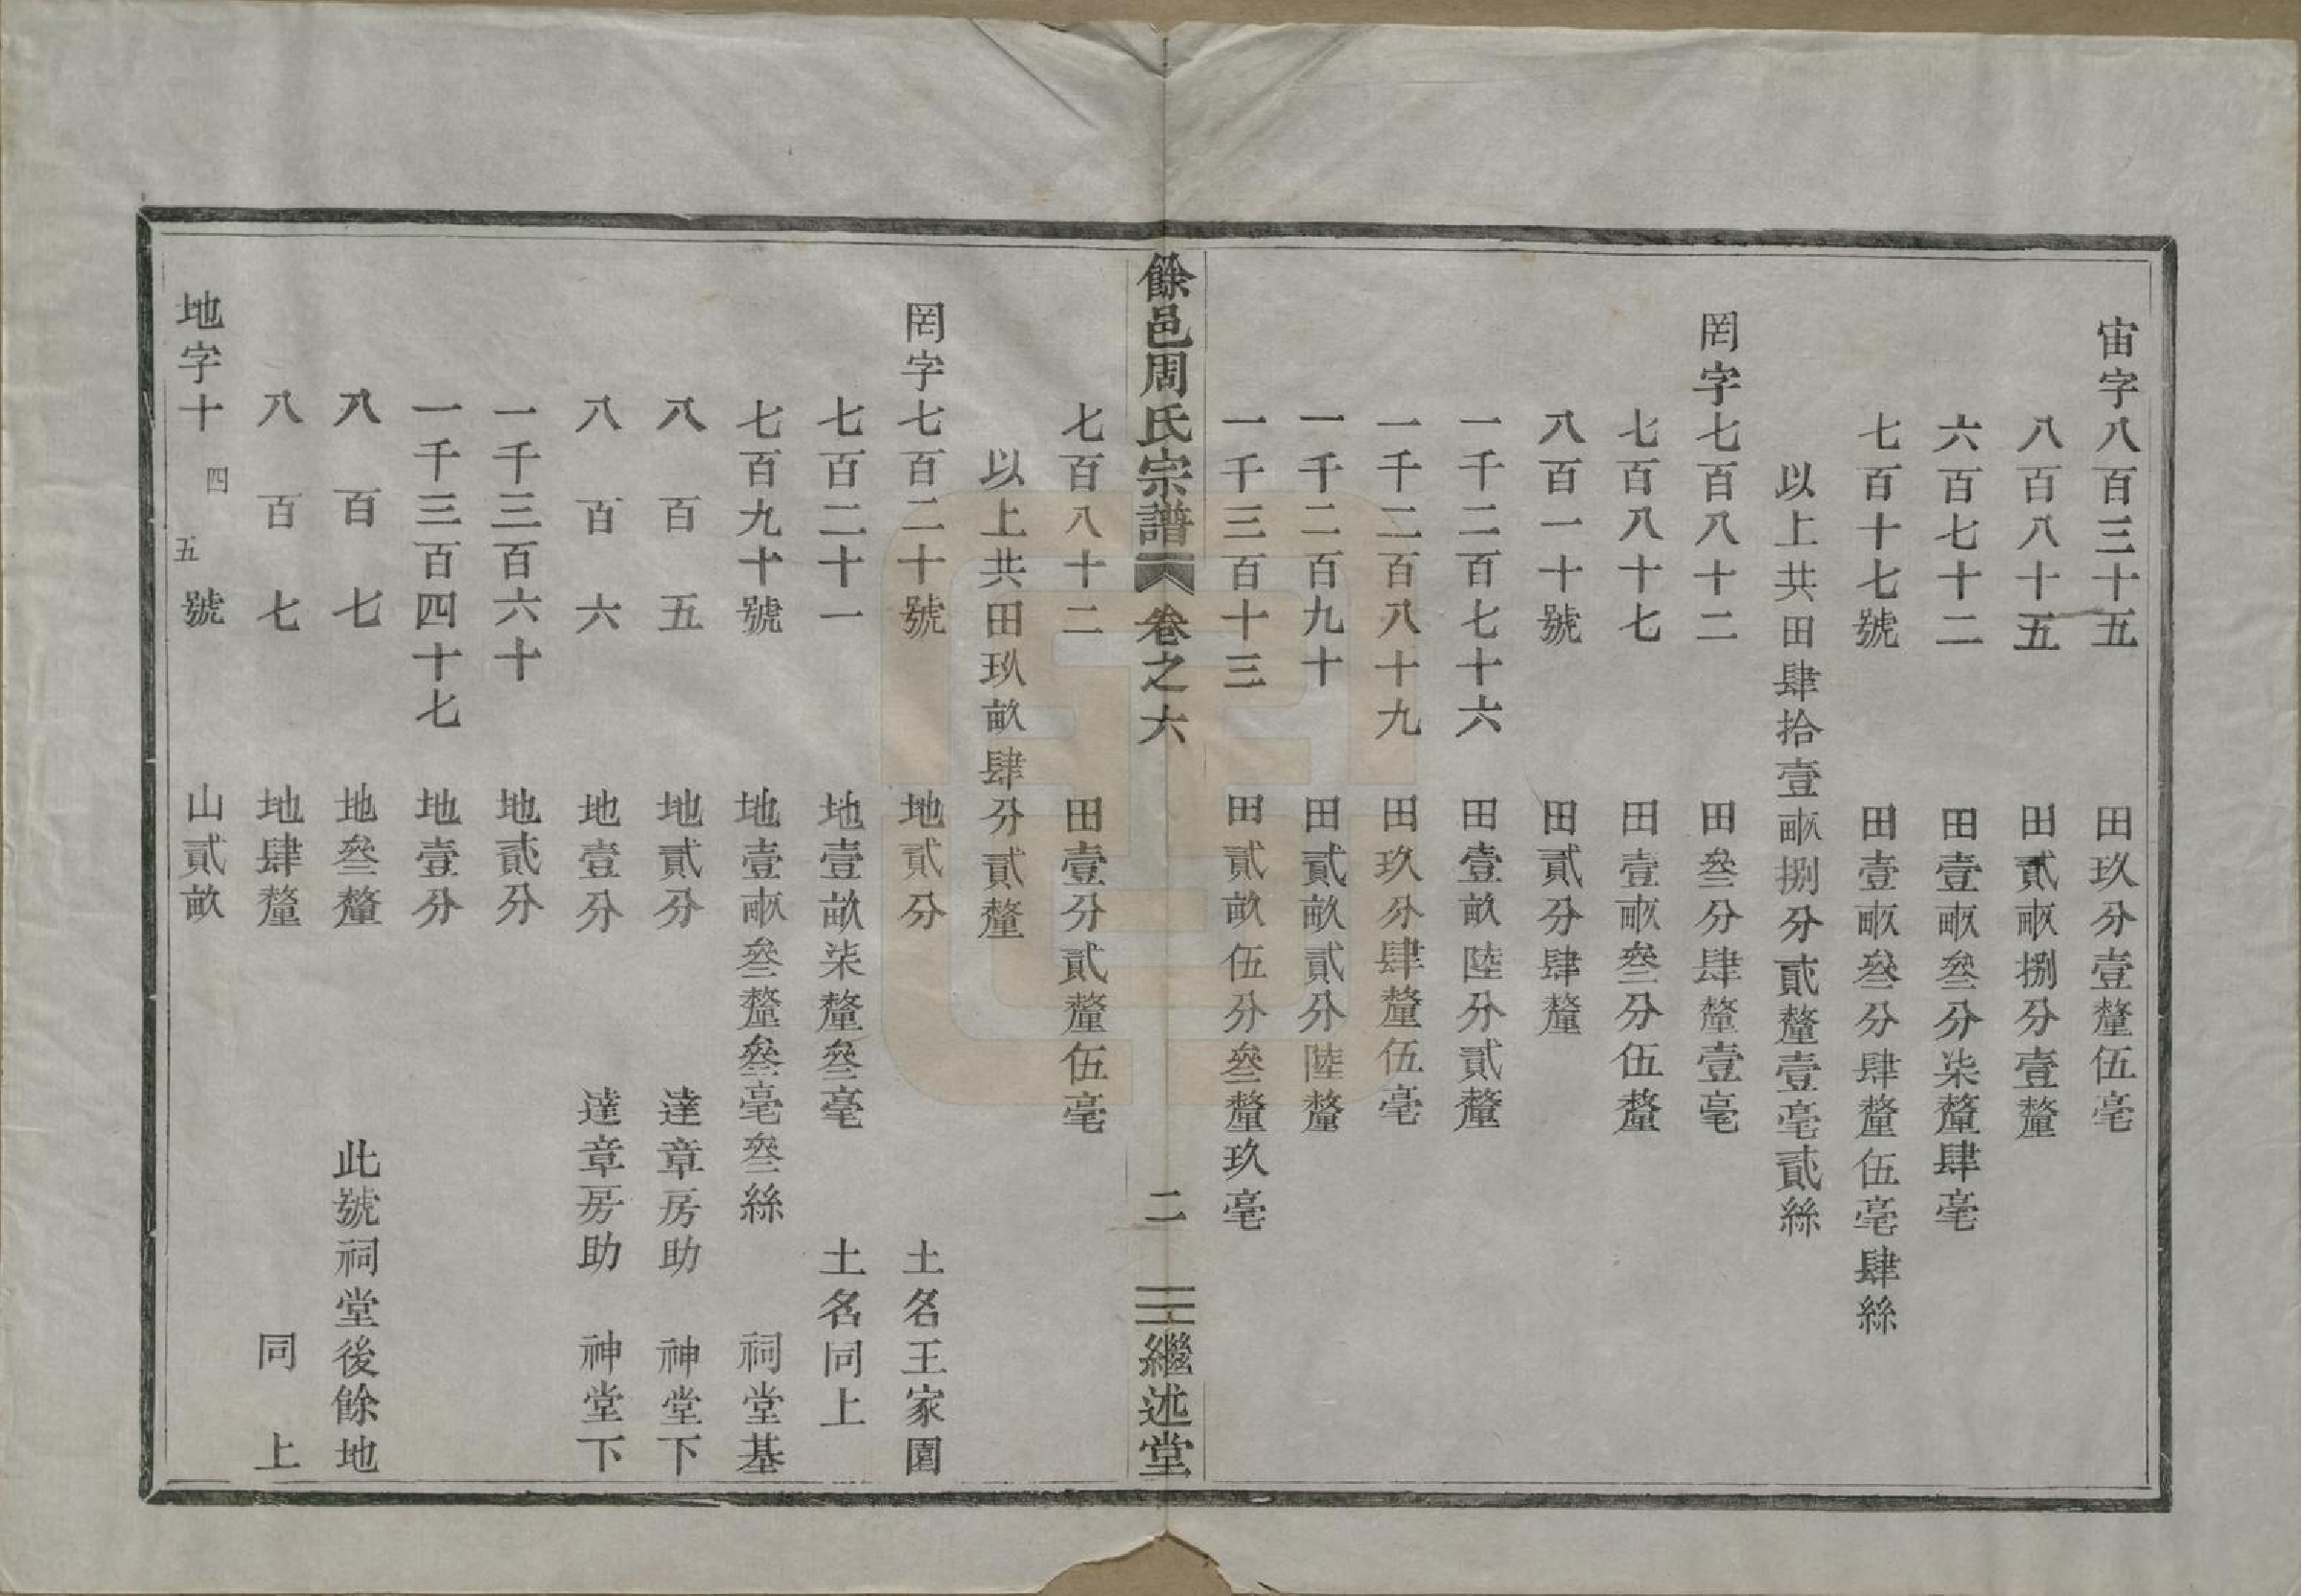 宙字八百三十五　田玖分壹釐伍毫
八百八十五　田貳畝捌分壹釐
六百七十二　田壹畝叄分柒釐肆毫
七百十七號　田壹畝叄分肆釐伍毫肆絲
以上共田肆拾壹畝捌分貳釐壹毫貳絲
罔字七百八十二　田叄分肆釐壹毫
七百八十七　田壹畝叄分伍釐
八百一十號　田貳分肆釐
一千二百七十六　田壹畝陸分貳釐
一千二百八十九　田玖分肆釐伍毫
一千二百九十　田貳畝貳分陸釐
一千三百十三　田貳畝伍分叄釐玖毫
餘邑周氏宗譜　卷之六　二　繼述堂
七百八十二　田壹分貳釐伍毫
以上共田玖畝肆分貳釐
罔字七百二十號　地貳分　土名王家園
七百二十一　地壹畝柒釐叄毫　土名同上
七百九十號　地壹畝叄釐叄毫叄絲　祠堂基
八百五　地貳分　達章房助　神堂下
八百六　地壹分　達章房助　神堂下
一千三百六十　地貳分
一千三百四十七　地壹分
八百七　地叄釐　此號祠堂後餘地
八百七　地肆釐　同上
地字十四五號　山貳畝